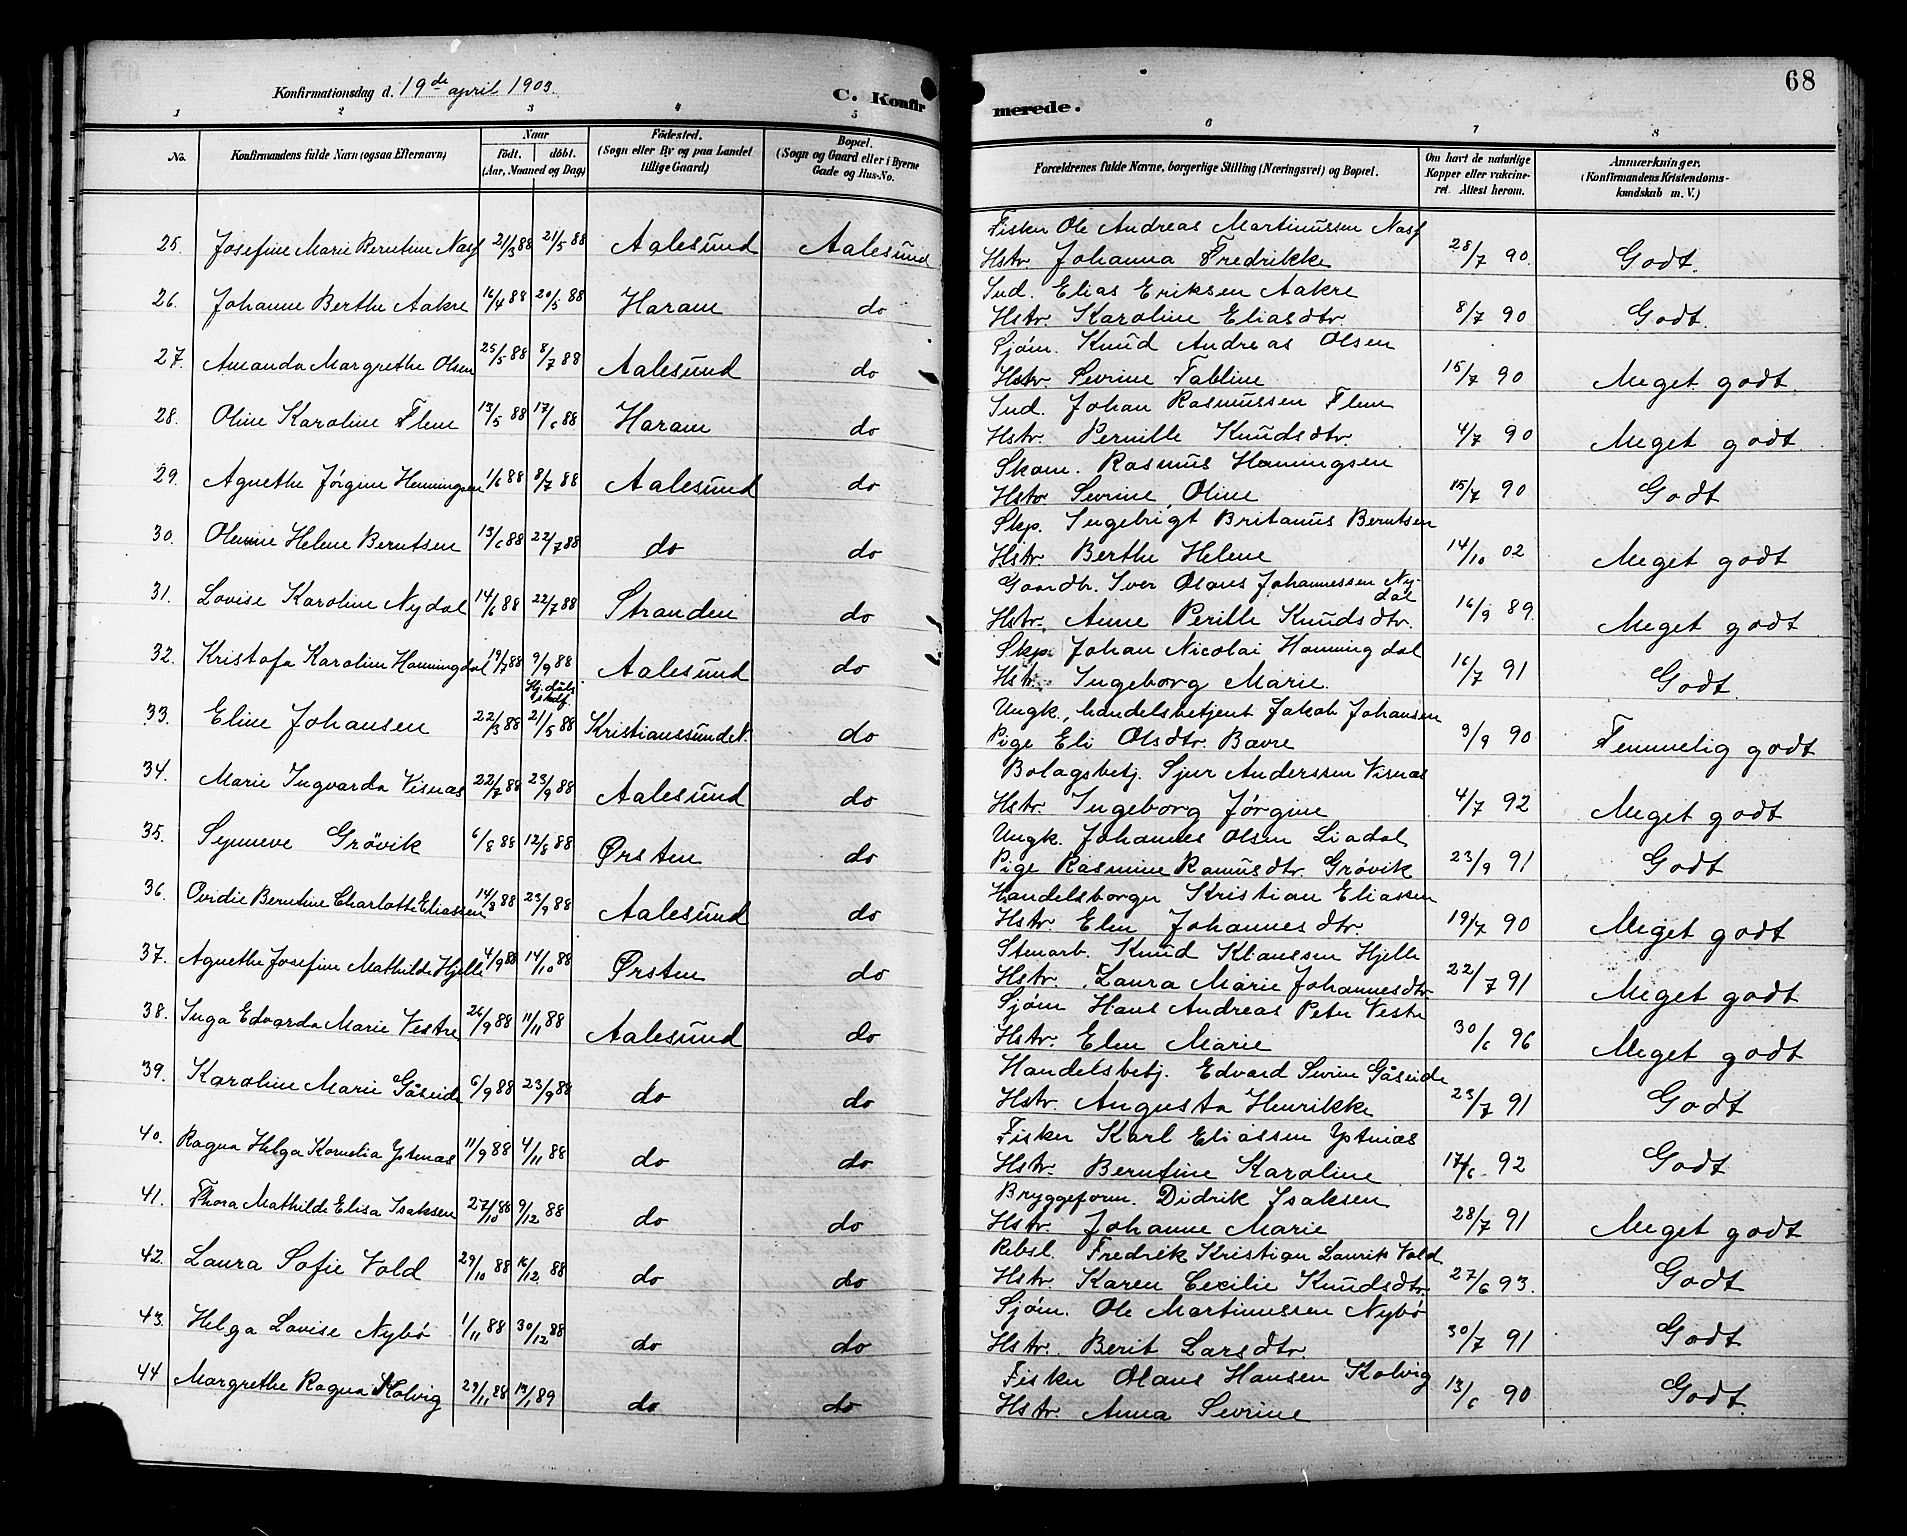 68
Konfirmationsdag d. 19de april 1903.
C. Konfirmerede.
1 2 3 4 5 6 7 8
No.
Konfirmandens fulde Navn (ogsaa Efternavn)
Naar
födt. döbt.
(Aar, Maaned og Dag)
Födested.
(Sogn eller By og paa Landet
tillige Gaard)
Bopæl.
(Sogn og Gaard eller i Byerne
Gade og Hus-No.
Forældrenes fulde Navne, borgerlige Stilling (Næringsvei) og Bopæl.
Om havt de naturlige
Kopper eller vakcine-
ret. Attest herom.
Anmærkninger.
(Konfirmandens Kristendoms-
kundskab m. V.)
Fisker Ole Andreas Martinussen
25. Josefine Marie Berntine 21/3 88 21/5 88 Aalesund Aalesund Hstr. Johanna Fredrikke 28/7 90. Godt.
Ind. Elias Eriksen Aakre
26. Johanne Berthe Aakre 16/4 88 20/5 88 Haram do Hstr. Karoline Eliasdtr 8/7 90 Godt.
Sjøm. Knud Andreas Olsen
27. Amanda Margrethe Olsen 25/5 88 8/7 88 Aalesund do Hstr Sevrine Tabline 15/7 90 Meget godt.
Ind. Johan Rasmussen Flem
28. Oline Karoline Flem 13/5 88 17/6 88 Haram do Hstr. Pernille Knudsdtr. 4/7 90 Meget godt.
Skom. Rasmus Henningsen
29. Agnethe Jørgine Henningsen 1/6 88 8/7 88 Aalesund do Hstr Sevrine Oline 15/7 90 Godt
Skp. Ingebrigt Britanus Berntsen
30. Helene Berntsen 13/6 88 22/7 88 do do Hstr. Berthe Helene 14/10 02 Meget godt
Gaardbr. Iver Olaus Johannessen Ny-
dal
31. Lovise Karoline Nydal 14/6 88 22/7 88 Stranden do Hstr. Anne Perille Knudsdtr. 16/9 89. Meget godt.
Skp. Johan Nicolai Honningdal
32. Kristofa Karoline Honningdal 19/7 88 9/9 88 Aalesund do Hstr. Ingeborg Marie. 16/7 91 Godt.
Hj. døbt
Ungk., handelsbetjent Jakob Johansen
33. Eline Johansen 22/3 88 21/5 88 Kristianssund N. do Pige Eli Olsdtr. Bavre 3/9 90 Temmelig godt
Bolagsbetj. Sjur Anderssen Visnæs
34. Marie Ingvarda Visnæs 22/7 88 23/9 88 Aalesund do Hstr. Ingeborg Jørgine 4/7 92 Meget godt
Ungk. Johannes Olsen Liadal
35. Synneve Grövik 6/8 88 12/8 88 Ørsten do Pige Rasmine Rasmusdtr. Grövik 23/9 91 Godt
Handelsborger Kristian Eliassen
36. Ovidie Berntine Charlotte Eliassen 14/8 88 23/9 88 Aalesund do Hstr. Elen Johannesdtr. 19/7 90 Meget godt
Stenarb. Knud Klaussen Hjelle
37. Agnethe Josefine Mathilde Hjelle 4/9 88 14/10 88 Ørsten do Hstr. Laura Marie Johannesdtr 22/7 91 Meget godt
Sjøm Hans Andreas Peter Vestre
38. Inga Edvarda Marie Vestre 26/9 88 11/11 88 Aalesund do Hstr. Elen Marie 30/6 96 Meget godt
Handelsbetj. Edvard Sevrin Gåseide
39. Karoline Marie Gåseide 6/9 88 23/9 88 do do Hstr. Augusta Henrikke 23/7 91 Godt
Fisker Karl Eliassen Ytnæs
40. Ragna Helga Kornelia Ytnæs 11/9 88 4/11 88 do do Hstr. Berntine Karoline 17/6 92 Godt
Bryggeform. Didrik Isaksen
41. Thora Mathilde Elisa Isaksen 27/10 88 9/12 88 do do Hstr. Johanne Marie 28/7 91 Meget godt
Rebsl. Fredrik Kristian Laurits Vold
42. Laura Sofie Vold 29/10 88 16/12 88 do do Hstr. Karen Cecilie Knudsdtr 27/6 93. Godt
Sjøm. Ole Martinussen Nybö
43. Helga Lovise Nybö 1/11 88 30/12 88 do do Hstr. Berit Larsdtr. 30/7 91 Godt
Fisker Olaus Hansen Kolvig
44 Margrethe Ragna Kolvig 29/11 88 /1 89 do do Hstr. Anna Sevrine 13/6 90 Godt.